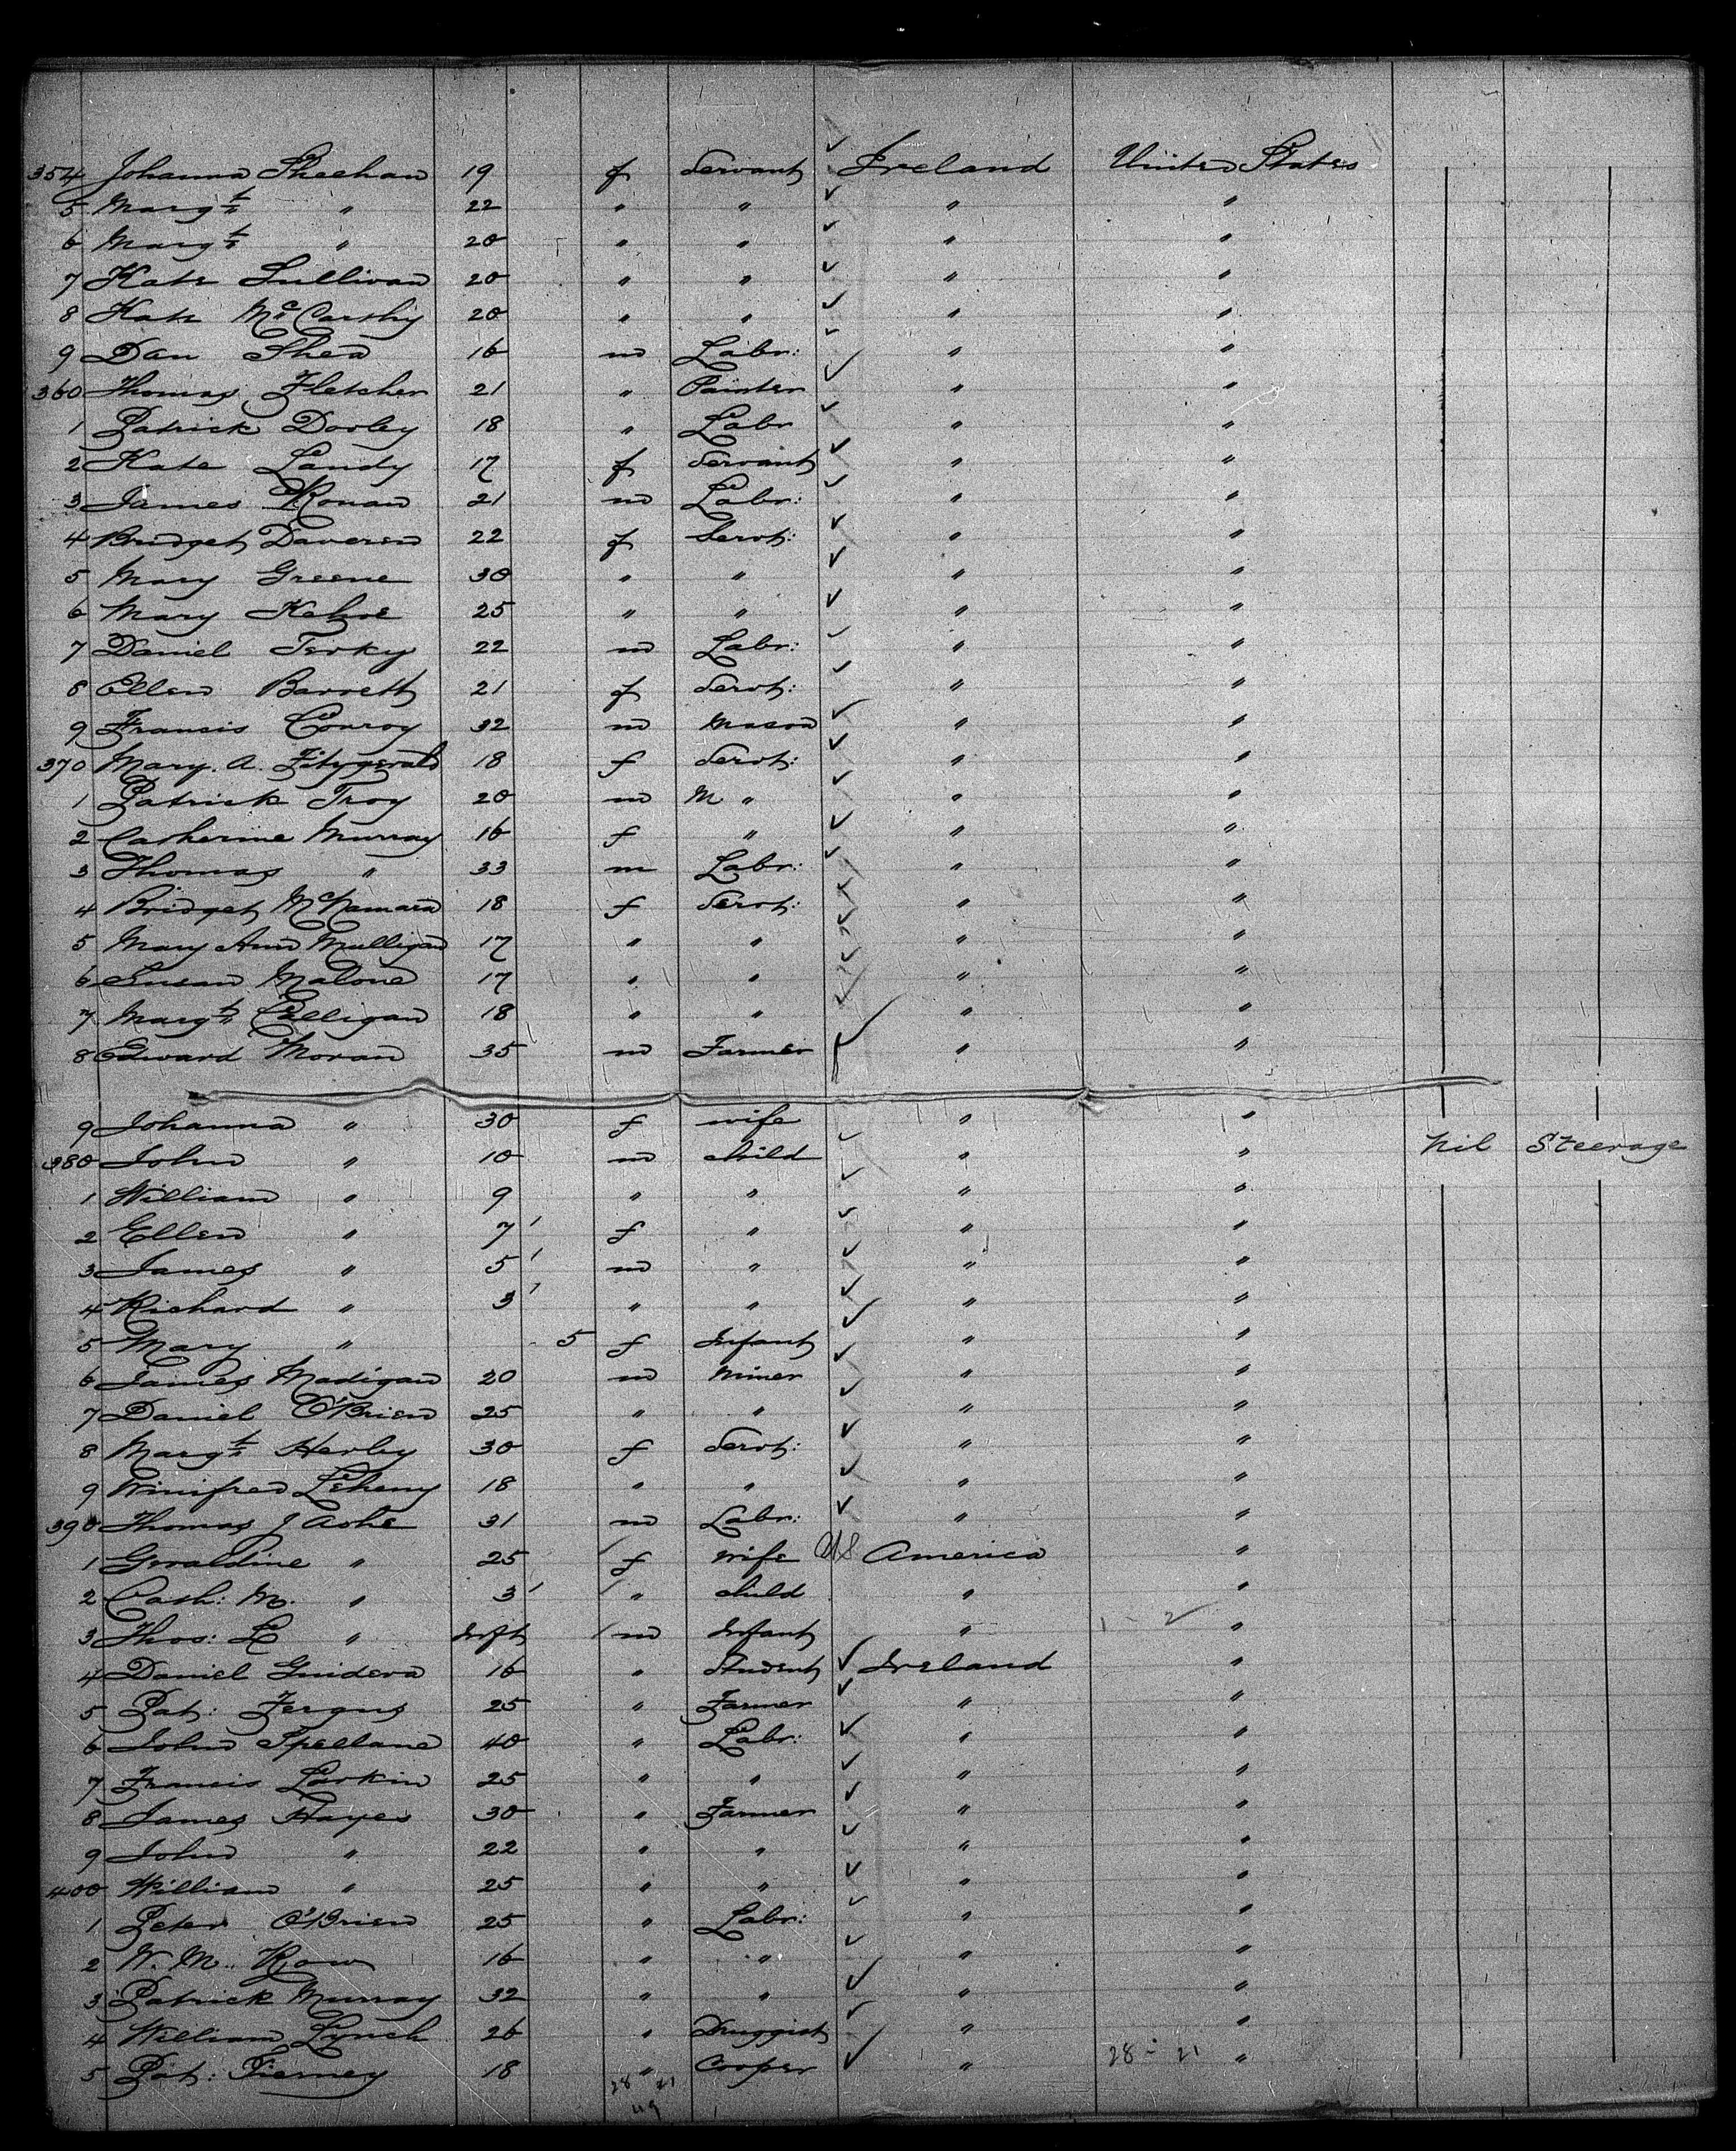 354 Johanna Sheehan 19 f Servant Ireland United States
5 Margt " 22 " " " "
6 Margt " 20 " " " "
7 Kate Sullivan 20 " " " "
8 Kate McCarthy 20 " " " "
9 Dan Shea 16 m Labr: " "
360 Thomas Fletcher 21 " Painter " "
1 Patrick Dooley 18 " Labr " "
2 Kate Landy 17 f Servant " "
3 James Ronan 21 m Labr: " "
4 Bridget Daveren 22 f Servt: " "
5 Mary Greene 30 " " " "
6 Mary Kehoe 25 " " " "
7 Daniel 22 m Labr: " "
8 Ellen Barrett 21 f Servt: " "
9 Francis Conroy 32 m Mason " "
370 Mary. A. Fitzgerald 18 f Servt: " "
1 Patrick Troy 20 m M " " "
2 Catherine Murray 16 f " " "
3 Thomas " 33 m Labr: " "
4 Bridget McNamara 18 f Servt: " "
5 Mary Ann Mulligan 17 " " " "
6 Susan Malone 17 " " " "
7 Margt Culligan 18 " " " "
8 Edward Moran 35 m Farmer " "
9 Johanna " 30 f wife " "
380 John " 10 m child " " Nil Steerage
1 William " 9 " " " "
2 Ellen " 7 f " " "
3 James " 5 m " " "
4 Richard " 3 " " " "
5 Mary " 5 f Infant " "
6 James Madigan 20 m Miner " "
7 Daniel O'Brien 25 " " " "
8 Margt Herley 30 f Servt: " "
9 Winifred Leheny 18 " " " "
390 Thomas J Ashe 31 m Labr: " "
1 Geraldine " 25 f wife US America "
2 Cath: M. " 3 " child " "
3 Thos: E " Inft m Infant " 1 - 2 "
4 Daniel Guidera 16 " Student Ireland "
5 Pat: Fergus 25 " Farmer " "
6 John Spellane 40 " Labr: " "
7 Francis Larkin 25 " " " "
8 James Hayes 30 " Farmer " "
9 John " 22 " " " "
400 William " 25 " " " "
1 Peter O'Brien 25 " Labr: " "
2 W. M. 16 " " " "
3 Patrick Murray 32 " " " "
4 William Lynch 26 " Druggist " "
5 Pat: Tierney 18 " Cooper " 28 - 21 "
28 21
49